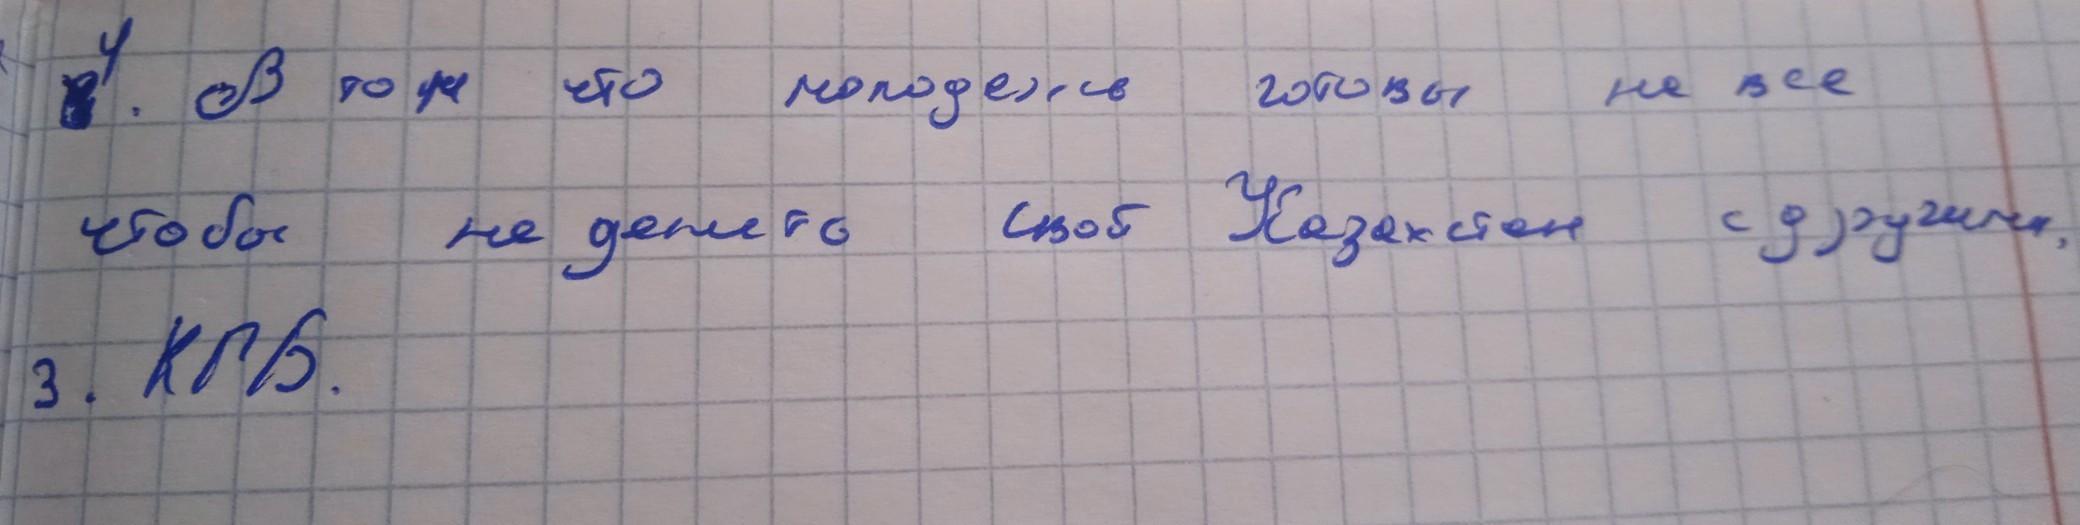 4. В том что молодежь готовы на все
чтобы не делить свой Казахстан с другими.
3. КГБ.